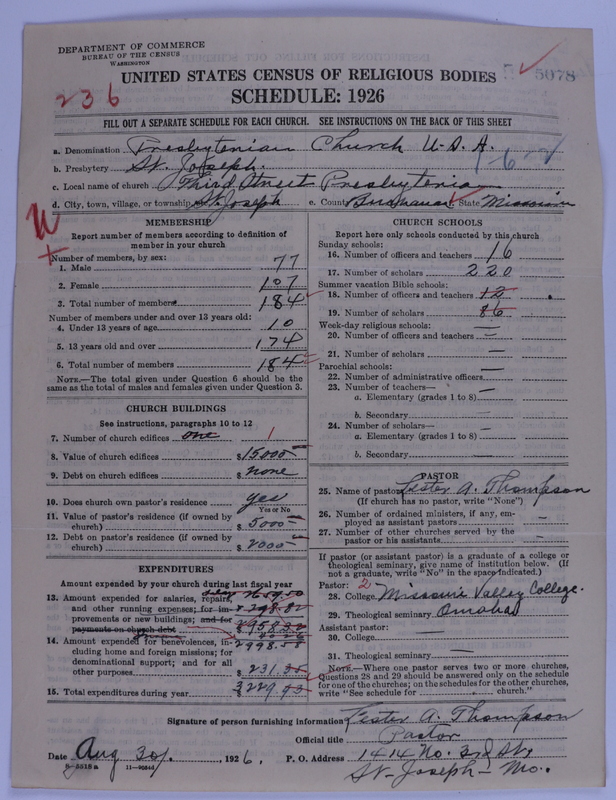 DEPARTMENT OF COMMERCE
BUREAU OF THE CENSUS
WASHINGTON
UNITED STATES CENSUS OF RELIGIOUS BODIES
5078
236
SCHEDULE: 1926
FILL OUT A SEPARATE SCHEDULE FOR EACH CHURCH. SEE INSTRUCTIONS ON THE BACK OF THIS SHEET
a. Denomination Presbyterian Church U.S.A.
b. Presbytery St. Joseph. 1-6-2
c. Local name of church Third Street Presbyterian
d. City, town, village, or township St. Joseph e. County Buchanan State Missouri
MEMBERSHIP
Report number of members according to definition of
member in your church
Number of members, by sex:
1. Male 77
2. Female 107
3. Total number of members 184
Number of members under and over 13 years old:
4. Under 13 years of age 10
5. 13 years old and over 174
6. Total number of members 184
NOTE.—The total given under Question 6 should be the
same as the total of males and females given under Question 3.
CHURCH BUILDINGS
See instructions, paragraphs 10 to 12
7. Number of church edifices one 1
8. Value of church edifices $15000
9. Debt on church edifices $ none
10. Does church own pastor's residence yes
Yes or No
11. Value of pastor's residence (if owned by
church) $ 5000
12. Debt on pastor's residence (if owned by
church) $ 2000
EXPENDITURES
Amount expended by your church during last fiscal year
13. Amount expended for salaries, repairs,
and other running expenses; for im-
provements or new buildings; and for
payments on church debt
2998.58
14. Amount expended for benevolences, in-
cluding home and foreign missions; for
denominational support; and for all
other purposes $ 231.
15. Total expenditures during year $ 3229.
CHURCH SCHOOLS
Report here only schools conducted by this church
Sunday schools:
16. Number of officers and teachers 16
17. Number of scholars 220
Summer vacation Bible schools:
18. Number of officers and teachers 12
19. Number of scholars 86
Week-day religious schools: —
20. Number of officers and teachers —
21. Number of scholars —
Parochial schools:
22. Number of administrative officers —
23. Number of teachers—
a. Elementary (grades 1 to 8) —
b. Secondary —
24. Number of scholars—
a. Elementary (grades 1 to 8) —
b. Secondary —
PASTOR
25. Name of pastor Lester A. Thompson
(If church has no pastor, write "None")
26. Number of ordained ministers, if any, em-
ployed as assistant pastors —
27. Number of other churches served by the
pastor or his assistants —
If pastor (or assistant pastor) is a graduate of a college or
theological seminary, give name of institution below. (If
not a graduate, write "No" in the space indicated.)
Pastor: 2
28. College Missouri Valley College.
29. Theological seminary Omaha
Assistant pastor:
30. College —
31. Theological seminary —
NOTE.—Where one pastor serves two or more churches,
Questions 28 and 29 should be answered only on the schedule
for one of the churches; on the schedules for the other churches,
write "See schedule for church."
Signature of person furnishing information Lester A. Thompson
Official title Pastor
Date Aug 30, 1926. P. O. Address 1414 No. 3rd St,
St. Joseph — Mo.